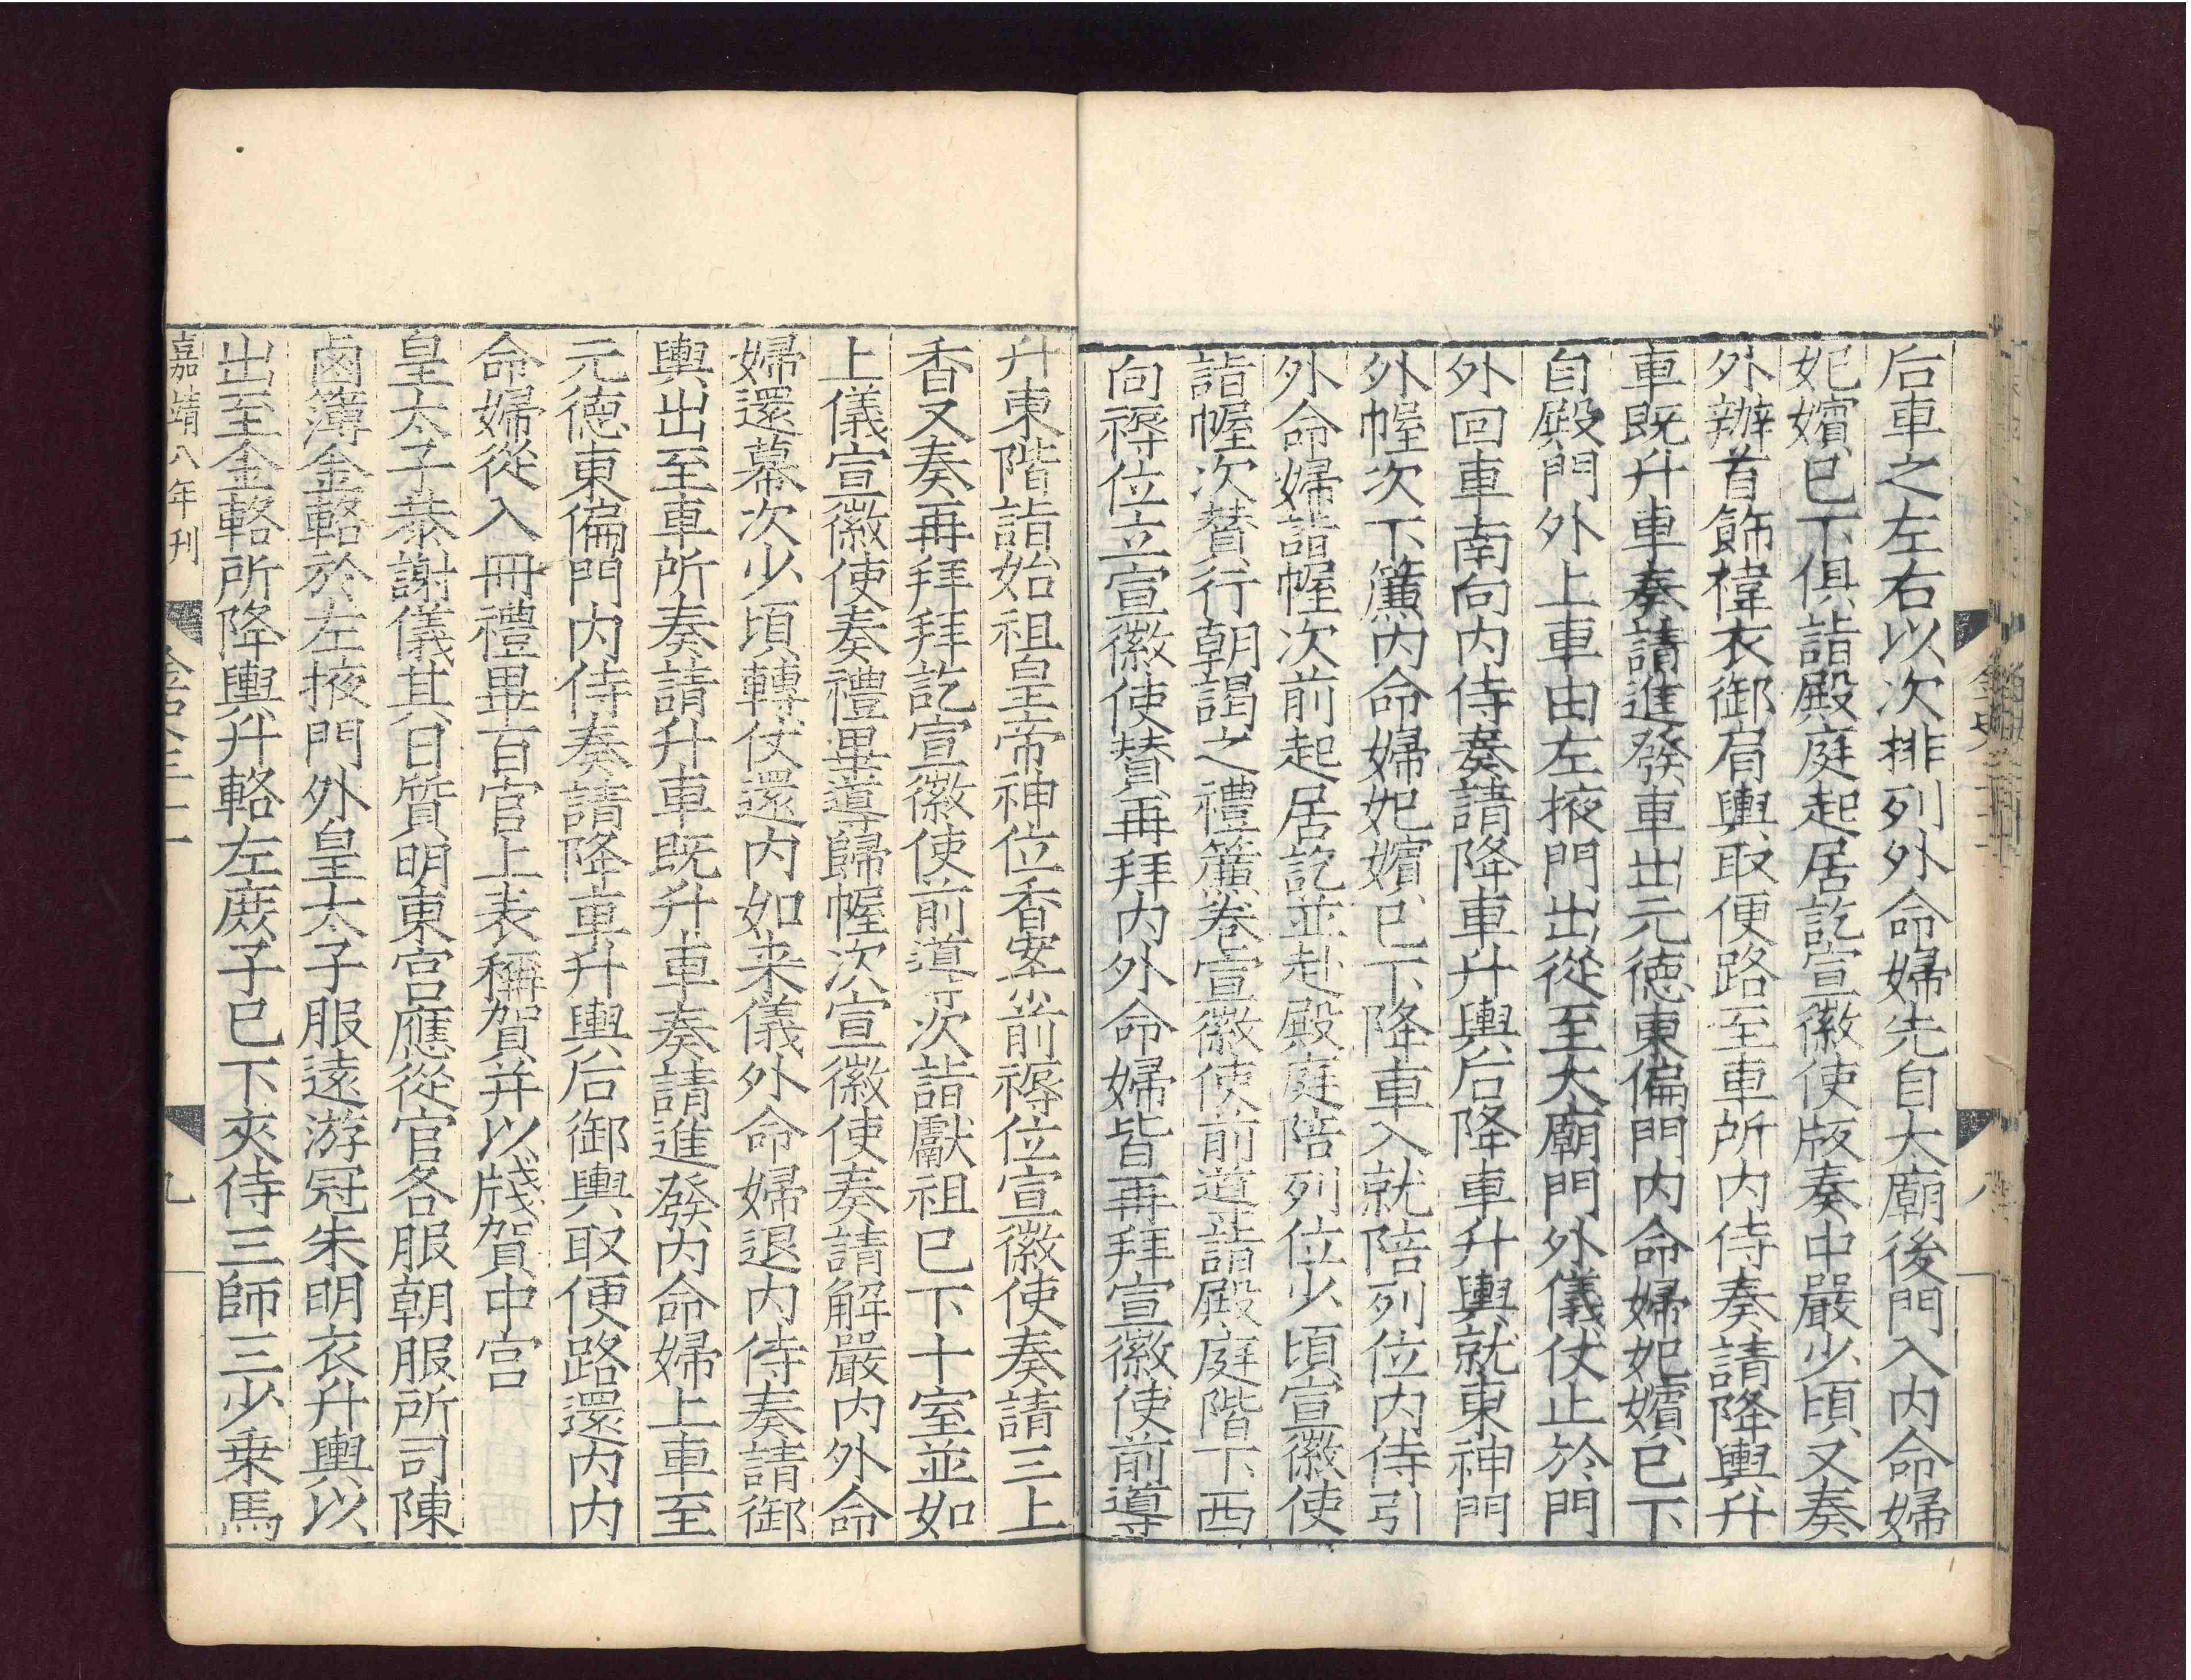 后車之左右以次排列外命婦先自太廟後門入内命婦
妃嬪已下俱詣殿庭起居訖宣徽使版奏中嚴少頃又奏
外辦首飾褘衣御肩輿取便路至車所内侍奏請降輿升
車既升車奏請進發車出元德東偏門内命婦妃嬪已下
自殿門外上車由左掖門出從至太廟門外儀仗止於門
外回車南向内侍奏請降車升輿后降車升輿就東神門
外幄次下簾内命婦妃嬪已下降車入就陪列位内侍引
外命婦詣幄次前起居訖並赴殿庭陪列位少頃宣徽使
詣幄次贊行朝謁之禮簾卷宣徽使前導詣殿庭階下西
向褥位立宣徽使贊再拜内外命婦皆再拜宣徽使前導
金史三十
八
升東階詣始祖皇帝神位香案前褥位宣徽使奏請三上
香又奏再拜拜訖宣徽使前導次詣獻祖已下十室並如
上儀宣徽使奏禮畢導歸幄次宣徽使奏請解嚴内外命
婦還幕次少頃轉仗還内如来儀外命婦退内侍奏請御
輿出至車所奏請升車既升車奏請進發内命婦上車至
元德東偏門内侍奏請降車升輿后御輿取便路還内内
命婦從入冊禮畢百官上表稱賀并以牋賀中宫
皇太子恭謝儀其日質明東宫應從官各服朝服所司陳
鹵簿金輅於左掖門外皇太子服遠游冠朱明衣升輿以
出至金輅所降輿升輅左庶子已下夾侍三師三少乗馬
嘉靖八年刊
九